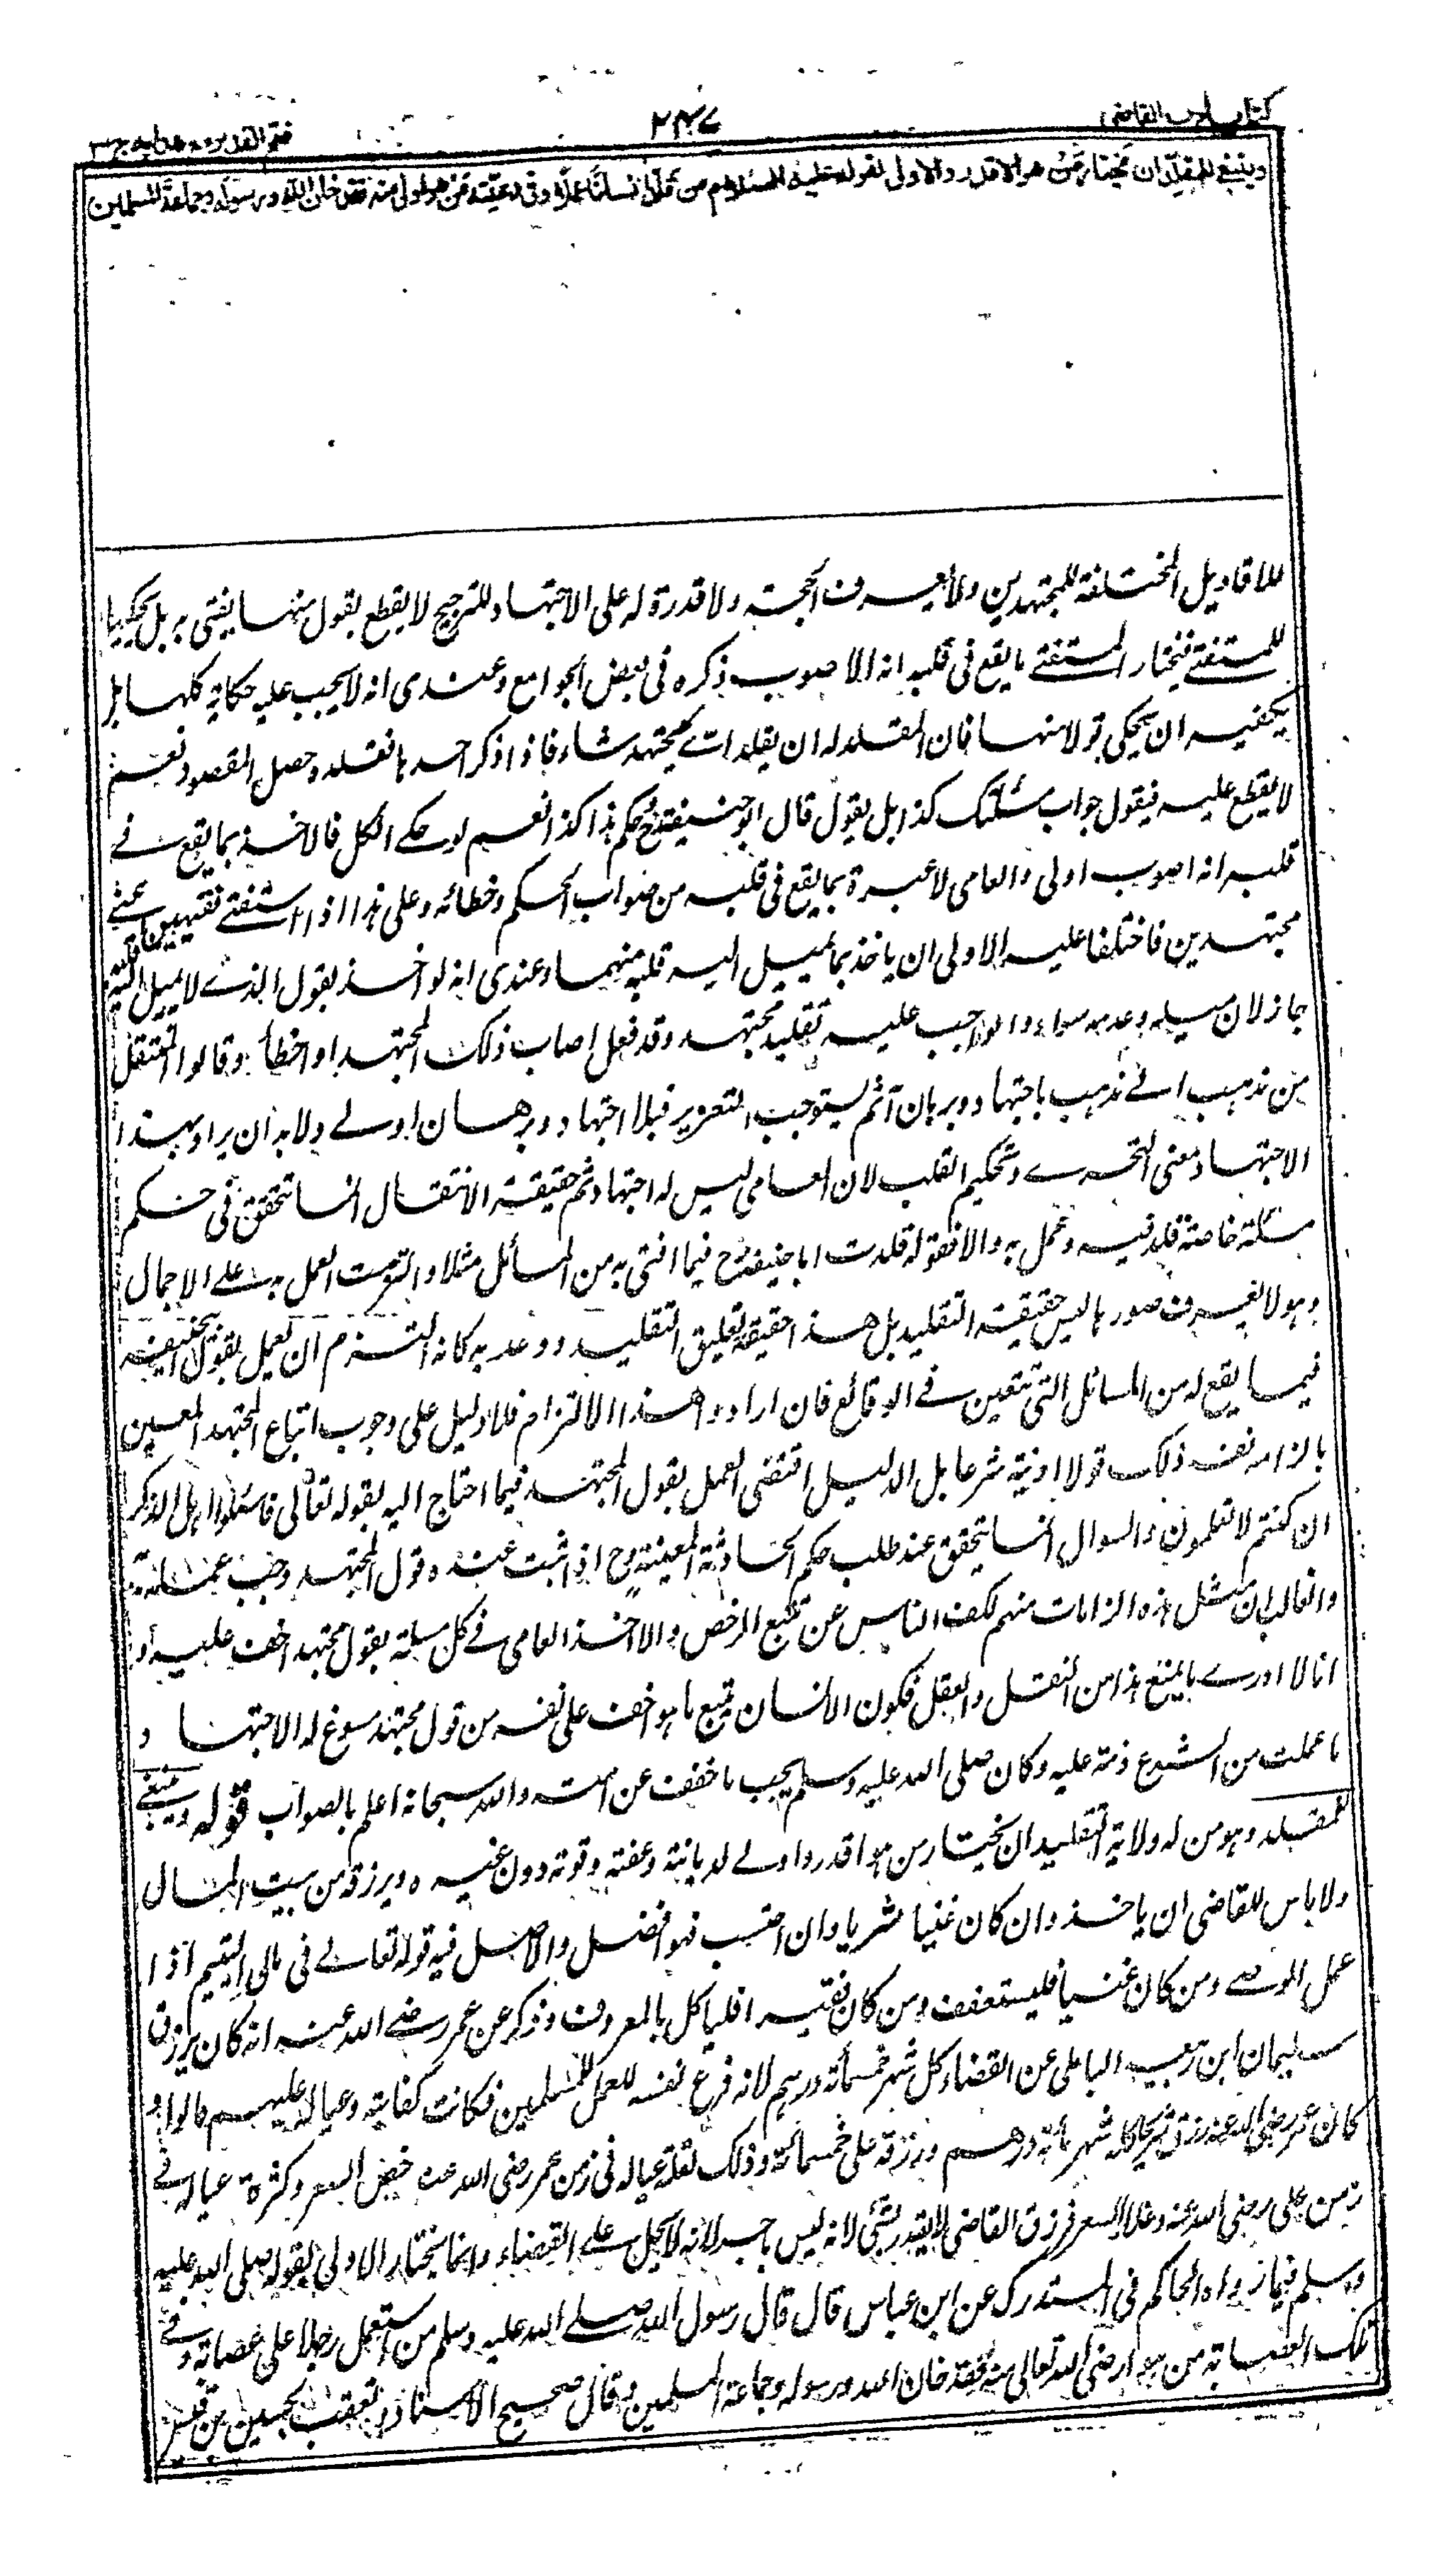 كتاب ادب القاضي
٢٤٧
فتح القدير مع هدايه ج ٣
وينبغي للمقلد ان يختار من هو الاقدر والاولى لقوله عليه السلام من قلد انسانا عملا وفي رعيته من هو اولى منه فقد خان الله ورسوله وجماعة المسلمين
للاقاويل المختلفة للمجتهدين ولا يعرف الحجة ولا قدرة له على الاجتهاد للترجيح لا يقطع بقول منها يفتى به بل يحكيها
للمستفتے فيختار المستفتے ما يقع فى قلبه انه الاصوب ذكره فى بعض الجوامع وعندى انه لا يجب عليه حكاية كلها بل
يكفيه ان يحكى قولا منها فان المقلد له ان يقلد اے مجتهد شاء فاذا ذكر احدها فقلده حصل المقصود نعم
لا يقطع عليه فيقول جواب مسئلتك كذا بل يقول قال ابو حنيفة رح حكم هذا كذا نعم لو حكے الكل فالاخذ بما يقع فے
قلبه انه اصوب اولى والعامى لا عبرة بما يقع فى قلبه من صواب الحكم وخطائه وعلى هذا اذا استفتے فقيهين اعنے
مجتهدين فاختلفا عليه الاولى ان ياخذ بما يميل اليه قلبه منهما وعندى انه لو اخذ بقول الذے لا يميل اليه قلبه
جاز لان ميله وعدمه سواء والواجب عليه تقليد مجتهد وقد فعل اصاب ذلك المجتهد او اخطأ وقالوا المنتقل
من مذهب الے مذهب باجتهاد وبرهان آثم يستوجب التعزير فبلا اجتهاد وبرهان اولے ولا بد ان يراد بهذا
الاجتهاد معنى التحرے وتحكيم القلب لان العامى ليس له اجتهاد ثم حقيقة الانتقال انما تتحقق فى حكم
مسئلة خاصة قلد فيه وعمل به والا فقوله قلدت ابا حنيفة رح فيما افتى به من المسائل مثلا والتزمت العمل به علے الاجمال
وهو لا يعرف صورها ليس حقيقة التقليد بل هذا حقيقة تعليق التقليد او وعد به كانه التزم ان يعمل بقول ابيحنيفة
فيما يقع له من المسائل التى تتعين فے الوقائع فان ارادوا هذا الالتزام فلا دليل على وجوب اتباع المجتهد المعين
بالزامه نفسه ذلك قولا او نية شرعا بل الدليل اقتضى العمل بقول المجتهد فيما احتاج اليه بقوله تعالى فاسئلوا اهل الذكر
ان كنتم لا تعلمون والسوال انما يتحقق عند طلب حكم الحادثة المعينة وح اذا ثبت عنده قول المجتهد وجب عمله به
والغالب ان مثل هذه الزامات منهم لكف الناس عن تتبع الرخص والا اخذ العامى فے كل مسئلة بقول مجتهد اخف عليه و
انا لا ادرے ما يمنع هذا من النقل والعقل فكون الانسان يتبع ما هو اخف على نفسه من قول مجتهد مسوغ له الاجتهاد
ما علمت من الشرع ذمه عليه وكان صلى الله عليه وسلم يحب ما خفف عن امته والله سبحانه اعلم بالصواب قوله وينبغے
للمقلد وهو من له ولاية التقليد ان يختار من هو اقدر واولے لديانته وعفته وقوته دون غيره ويرزقه من بيت المال
ولا باس للقاضى ان ياخذ وان كان غنيا مثريا وان احتسب فهو افضل والاصل فيه قوله تعالے فى مال اليتيم اذا
عمل الموصے ومن كان غنيا فليستعفف ومن كان فقيرا فلياكل بالمعروف وذكر عن عمر رضے الله عنه انه كان يرزق
سليمان ابن ربيعة الباهلى عن القضاء كل شهر خمسمائة درهم لانه فرغ نفسه للعمل للمسلمين فكانت كفايته وعياله عليهم قالوا و
كان عمر رضى الله عنه رزق شريحا كل شهر مائة درهم ورزقه على خمسمائة وذلك لقلة عياله فى زمن عمر رضى الله عنه ورخص السعر وكثرة عياله فے
زمن على رضى الله عنه وغلاء السعر فرزق القاضى لا يقدر بشئ لانه ليس باجر لانه لا يحل علے القضاء وانما يختار الاولى لقوله صلى الله عليه
وسلم فيما رواه الحاكم فى المستدرك عن ابن عباس قال قال رسول الله صلے الله عليه وسلم من استعمل رجلا على عصابة وفے
تلك العصابة من هو ارضى لله تعالى منه فقد خان الله ورسوله وجماعة المسلمين وقال صحيح الاسناد وتعقب بحسين بن قيس